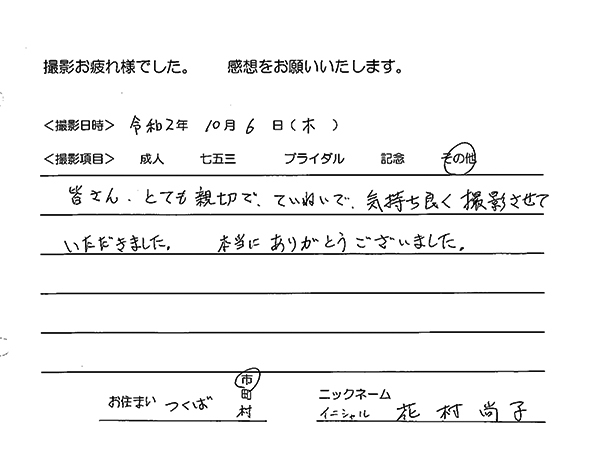 撮影お疲れ様でした。 感想をお願いいたします。
<撮影日時> 令和2年 10月 6日(木)
<撮影項目> 成人 七五三 ブライダル 記念 その他
皆さん、とても親切で、ていねいで、気持ち良く撮影させて
いただきました。 本当にありがとうございました。
お住まい つくば 市町村
ニックネーム
イニシャル 花村尚子